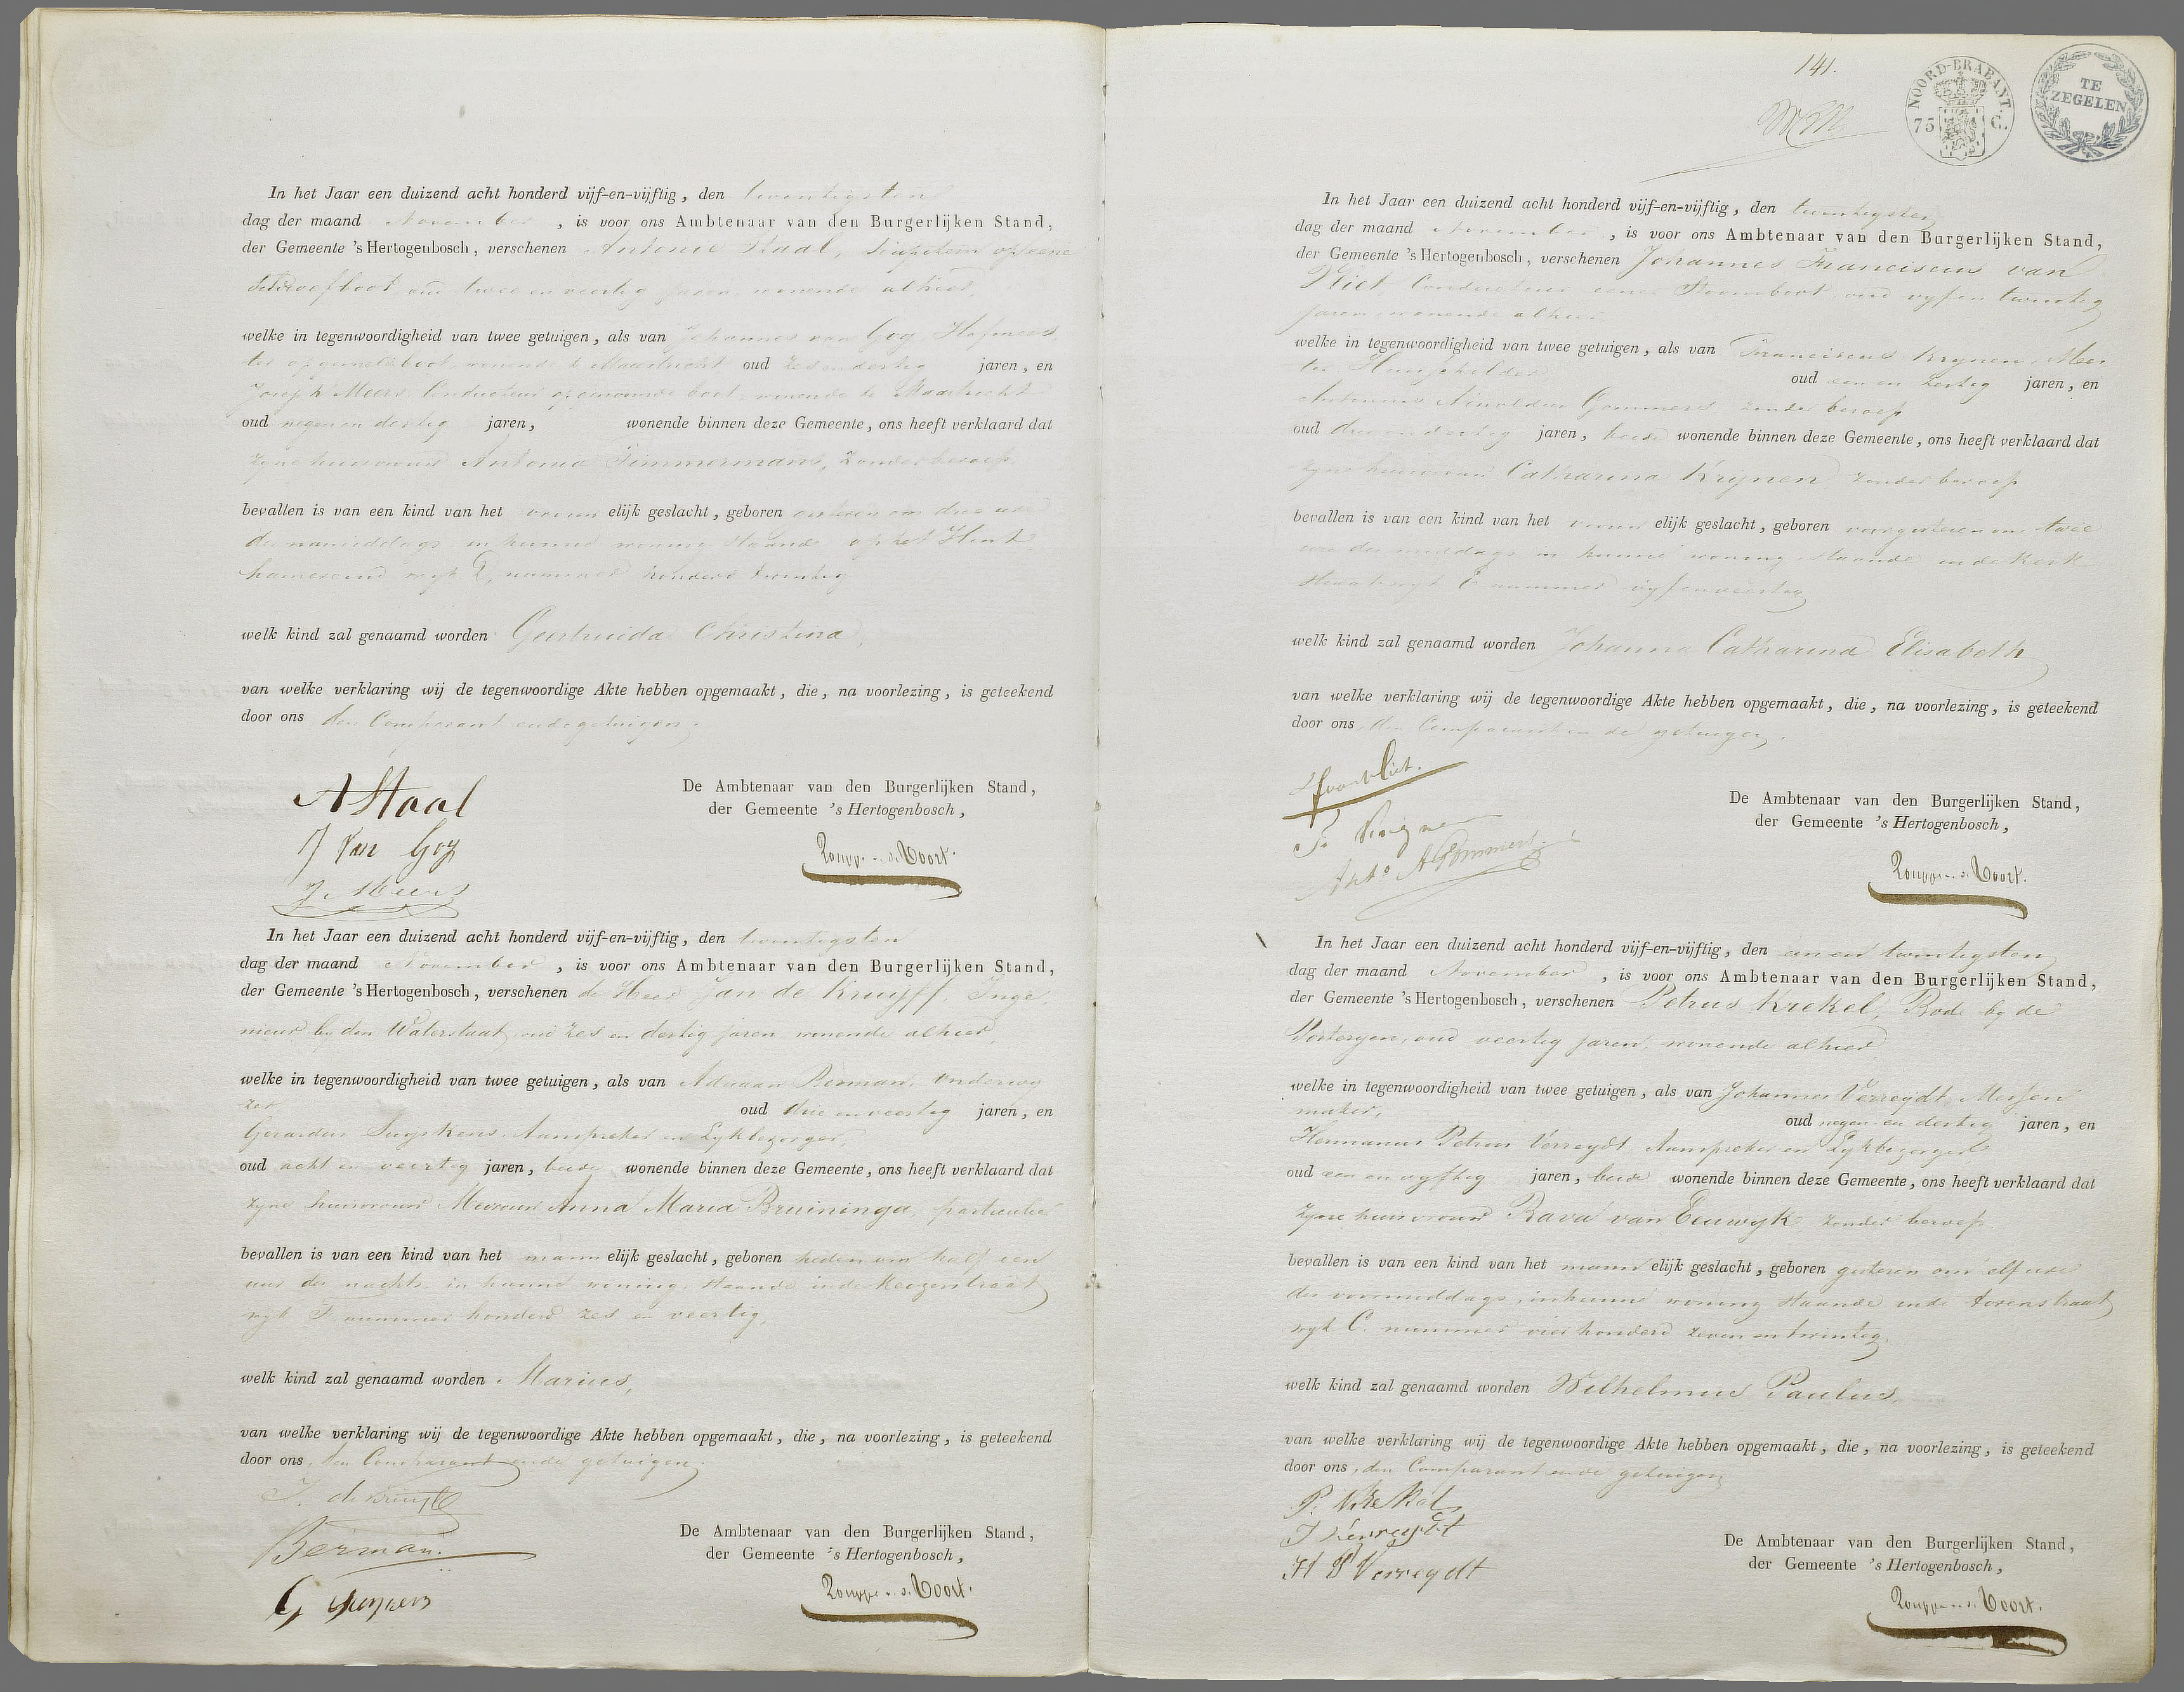 In het Jaar een duizend acht honderd vijf-en-vijftig, den twintigsten
dag der maand November, is voor ons Ambtenaar van den Burgerlijken Stand,
der Gemeente 's Hertogenbosch, verschenen Antonie Staal, op eene
oud twee en veertig jaren, wonende alhier,
welke in tegenwoordigheid van twee getuigen, als van Johannes van Gog, Hofmees
ter op gemelde boot, wonende te Maastricht oud zes en dertig jaren, en
Joseph Meers, Conducteur op genoemde boot, wonende te Maastricht
oud negen en dertig jaren, wonende binnen deze Gemeente, ons heeft verklaard dat
zyne huisvrouw Antonia Timmermans, zonder beroep
bevallen is van een kind van het vrouwelijk geslacht, geboren gisteren om drie ure
des namiddags in hunne woning staande op het Hint
hamereind wyk D, nummer honderd twintig
welk kind zal genaamd worden Geertruida Christina,
van welke verklaring wij de tegenwoordige Akte hebben opgemaakt, die, na voorlezing, is geteekend
door ons den Comparant en de getuigen.
De Ambtenaar van den Burgerlijken Stand,
der Gemeente 's Hertogenbosch,
A Staal
J Van Gog
J. Meers
v. d. Voort.
In het Jaar een duizend acht honderd vijf-en-vijftig, den twintigsten
dag der maand November, is voor ons Ambtenaar van den Burgerlijken Stand,
der Gemeente 's Hertogenbosch, verschenen de Heer Jan de Kruijff, Inge
nieur by den Waterstaat, oud zes en dertig jaren, wonende alhier,
welke in tegenwoordigheid van twee getuigen, als van Adriaan Berman, Onderwy
zer, oud drie en veertig jaren, en
Gerardus Suyskens, Aanspreker en Lykbezorger,
oud acht en veertig jaren, beide wonende binnen deze Gemeente, ons heeft verklaard dat
zyne huisvrouw Mevrouw Anna Maria Bruininga, particulier
bevallen is van een kind van het mannelijk geslacht, geboren heden om half een
ure des nachts in hunne woning, staande in de Keizerstraat
wyk F, nummer honderd zes en veertig,
welk kind zal genaamd worden Marius,
van welke verklaring wij de tegenwoordige Akte hebben opgemaakt, die, na voorlezing, is geteekend
door ons, den Comparant en de getuigen.
J. de Kruijff
Berman.
G Suyskens
De Ambtenaar van den Burgerlijken Stand,
der Gemeente 's Hertogenbosch,
v. d. Voort.
141.
NOORD-BRABANT.
75 C.
TE
ZEGELEN
In het Jaar een duizend acht honderd vijf-en-vijftig, den twintigsten
dag der maand November, is voor ons Ambtenaar van den Burgerlijken Stand,
der Gemeente 's Hertogenbosch, verschenen Johannes Franciscus van
Vliet, Conducteur eener Stoomboot, oud vyf en twintig
jaren, wonende alhier
welke in tegenwoordigheid van twee getuigen, als van Franciscus Krynen, Mees
ter Huisschilder oud een en zestig jaren, en
Antonius Arnoldus Gommers, zonder beroep
oud drie en dertig jaren, beide wonende binnen deze Gemeente, ons heeft verklaard dat
zyne huisvrouw Catharina Krynen, zonder beroep
bevallen is van een kind van het vrouwelijk geslacht, geboren voorgisteren om twee
ure des middags in hunne woning, staande in de Kerk
straat wyk E nummer vyf en veertig
welk kind zal genaamd worden Johanna Catharina Elisabeth
van welke verklaring wij de tegenwoordige Akte hebben opgemaakt, die, na voorlezing, is geteekend
door ons, den Comparant en de getuigen.
van Vliet.
F. Krynen
Anto A Gommers
De Ambtenaar van den Burgerlijken Stand,
der Gemeente 's Hertogenbosch,
v. d. Voort.
In het Jaar een duizend acht honderd vijf-en-vijftig, den een en twintigsten
dag der maand November, is voor ons Ambtenaar van den Burgerlijken Stand,
der Gemeente 's Hertogenbosch, verschenen Petrus Krekel, Bode by de
Posteryen, oud veertig jaren, wonende alhier
welke in tegenwoordigheid van twee getuigen, als van Johannes Verreydt, Messen
maker, oud negen en dertig jaren, en
Hermanus Petrus Verreydt, Aanspreker en Lykbezorger
oud een en vyftig jaren, beide wonende binnen deze Gemeente, ons heeft verklaard dat
zyne huisvrouw van Eeuwyk zonder beroep
bevallen is van een kind van het mannelijk geslacht, geboren gisteren om elf ure
des voormiddags, in hunne woning staande in de torenstraat
wyk C. nummer vier honderd zeven en twintig,
welk kind zal genaamd worden Wilhelmus Paulus,
van welke verklaring wij de tegenwoordige Akte hebben opgemaakt, die, na voorlezing, is geteekend
door ons, den Comparant en de getuigen.
P. Krekel
J Verreydt
H P Verreydt
De Ambtenaar van den Burgerlijken Stand,
der Gemeente 's Hertogenbosch,
v. d. Voort.